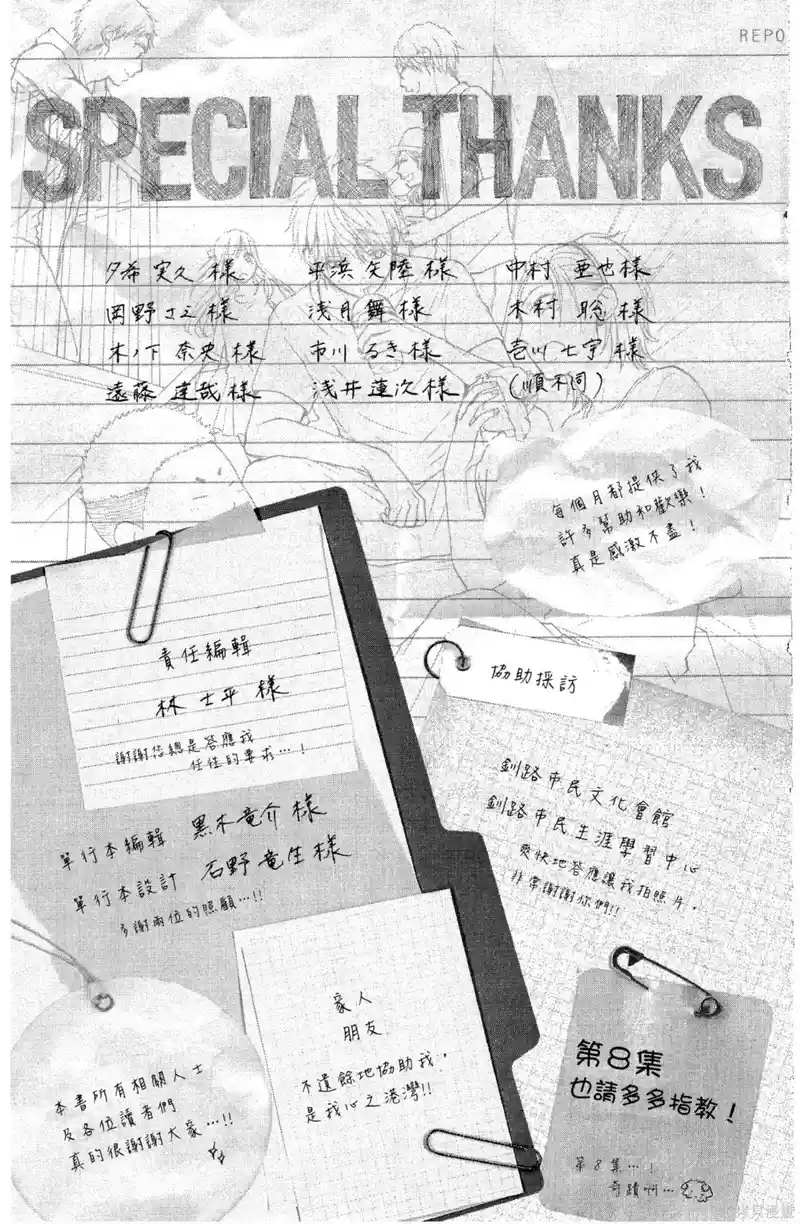 REPO
SPECIAL THANKS
夕希 実久 様　平浜 矢陸 様　中村 亜也様
岡野さえ 様　浅月舞 様　木村 聡 様
木ノ下 奈央 様　市川 るき 様　壱川 七宇 様
遠藤 達哉 様　浅井 蓮次 様　(順不同)
每個月都提供了我
許多幫助和歡樂！
真是感激不盡！
責任編輯
林 士平 様
謝謝您總是答應我
任性的要求…！
單行本編輯　黒木竜介 様
單行本設計　石野竜生 様
多謝兩位的照顧…!!
協助採訪
釧路市民文化會館
釧路市民生涯學習中心
爽快地答應讓我拍照片，
非常謝謝你們!!
家人
朋友
不遺餘地協助我，
是我心之港灣!!
本書所有相關人士
及各位讀者們
真的很謝謝大家…!!
第8集
也請多多指教！
第8集…！
奇蹟啊…